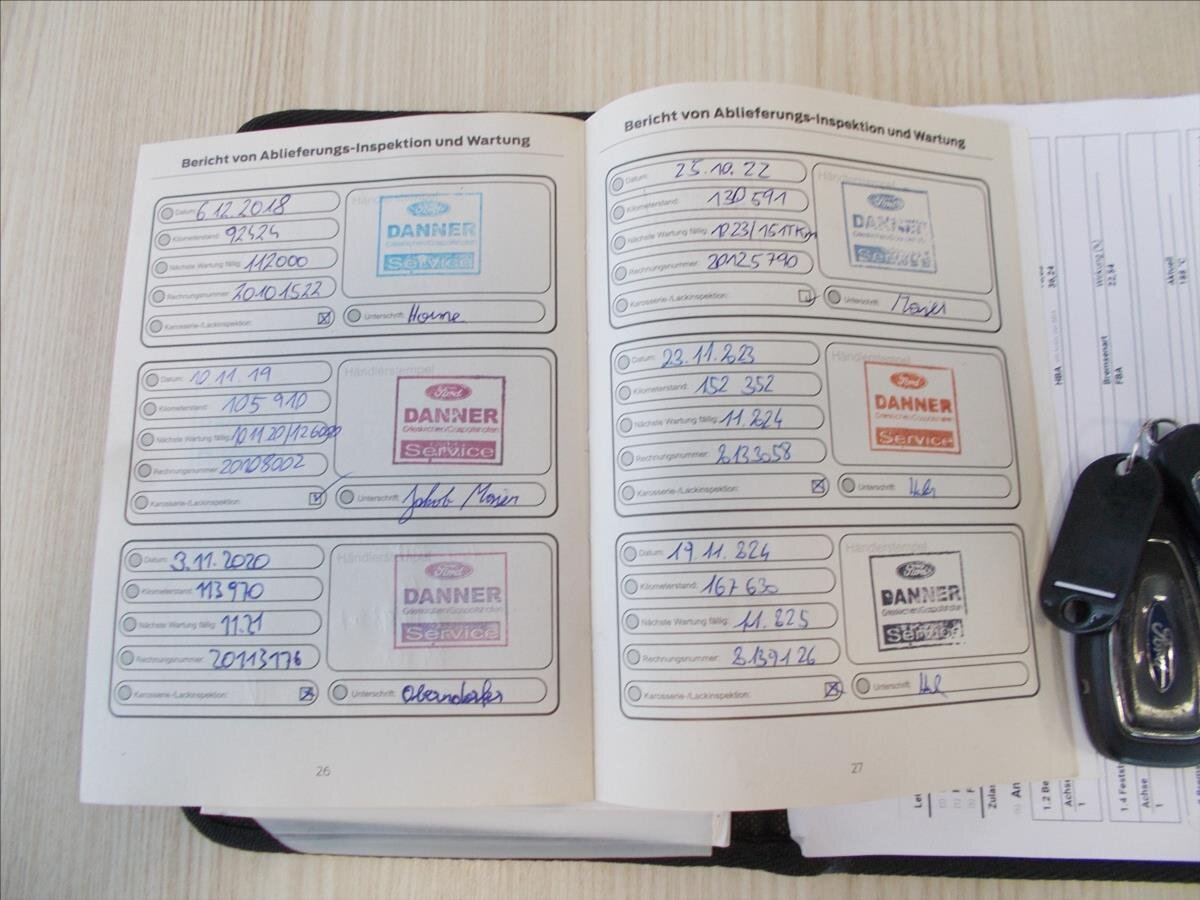 Bericht von Ablieferungs-Inspektion und Wartung
Datum: 6.12.2018
Kilometerstand: 92424
Nächste Wartung fällig: 112000
Rechnungsnummer: 20101522
Karosserie-/Lackinspektion:
Händlerstempel
Ford
DANNER
Grieskirchen/Gaspoltshofen
Service
Unterschrift:
Datum: 10 11. 19
Kilometerstand: 105910
Nächste Wartung fällig: 10 11 20/126000
Rechnungsnummer: 20108002
Karosserie-/Lackinspektion:
Händlerstempel
Ford
DANNER
Grieskirchen/Gaspoltshofen
Service
Unterschrift: Jakob Maier
Datum: 3.11.2020
Kilometerstand: 113970
Nächste Wartung fällig: 11.21
Rechnungsnummer: 20113176
Karosserie-/Lackinspektion:
Händlerstempel
Ford
DANNER
Grieskirchen/Gaspoltshofen
Service
Unterschrift: Oberndorfer
26
Bericht von Ablieferungs-Inspektion und Wartung
Datum: 25.10.22
Kilometerstand: 130591
Nächste Wartung fällig: 1023/151TKm
Rechnungsnummer: 20125790
Karosserie-/Lackinspektion:
Händlerstempel
Ford
DANNER
Grieskirchen/Gaspoltshofen
Service
Unterschrift: Maier
Datum: 23.11.2023
Kilometerstand: 152 352
Nächste Wartung fällig: 11.2024
Rechnungsnummer: 2133058
Karosserie-/Lackinspektion:
Händlerstempel
Ford
DANNER
Grieskirchen/Gaspoltshofen
Service
Unterschrift:
Datum: 19.11.2024
Kilometerstand: 167 630
Nächste Wartung fällig: 11.2025
Rechnungsnummer: 2139126
Karosserie-/Lackinspektion:
Händlerstempel
Ford
DANNER
Grieskirchen/Gaspoltshofen
Service
Unterschrift:
27
HBA
36,24
Bremsenart
FBA
Wirkung [%]
22,54
Aktuell
188 °C
1.2 Be
Achse
1
1.4 Festst
Achse
1
Ford